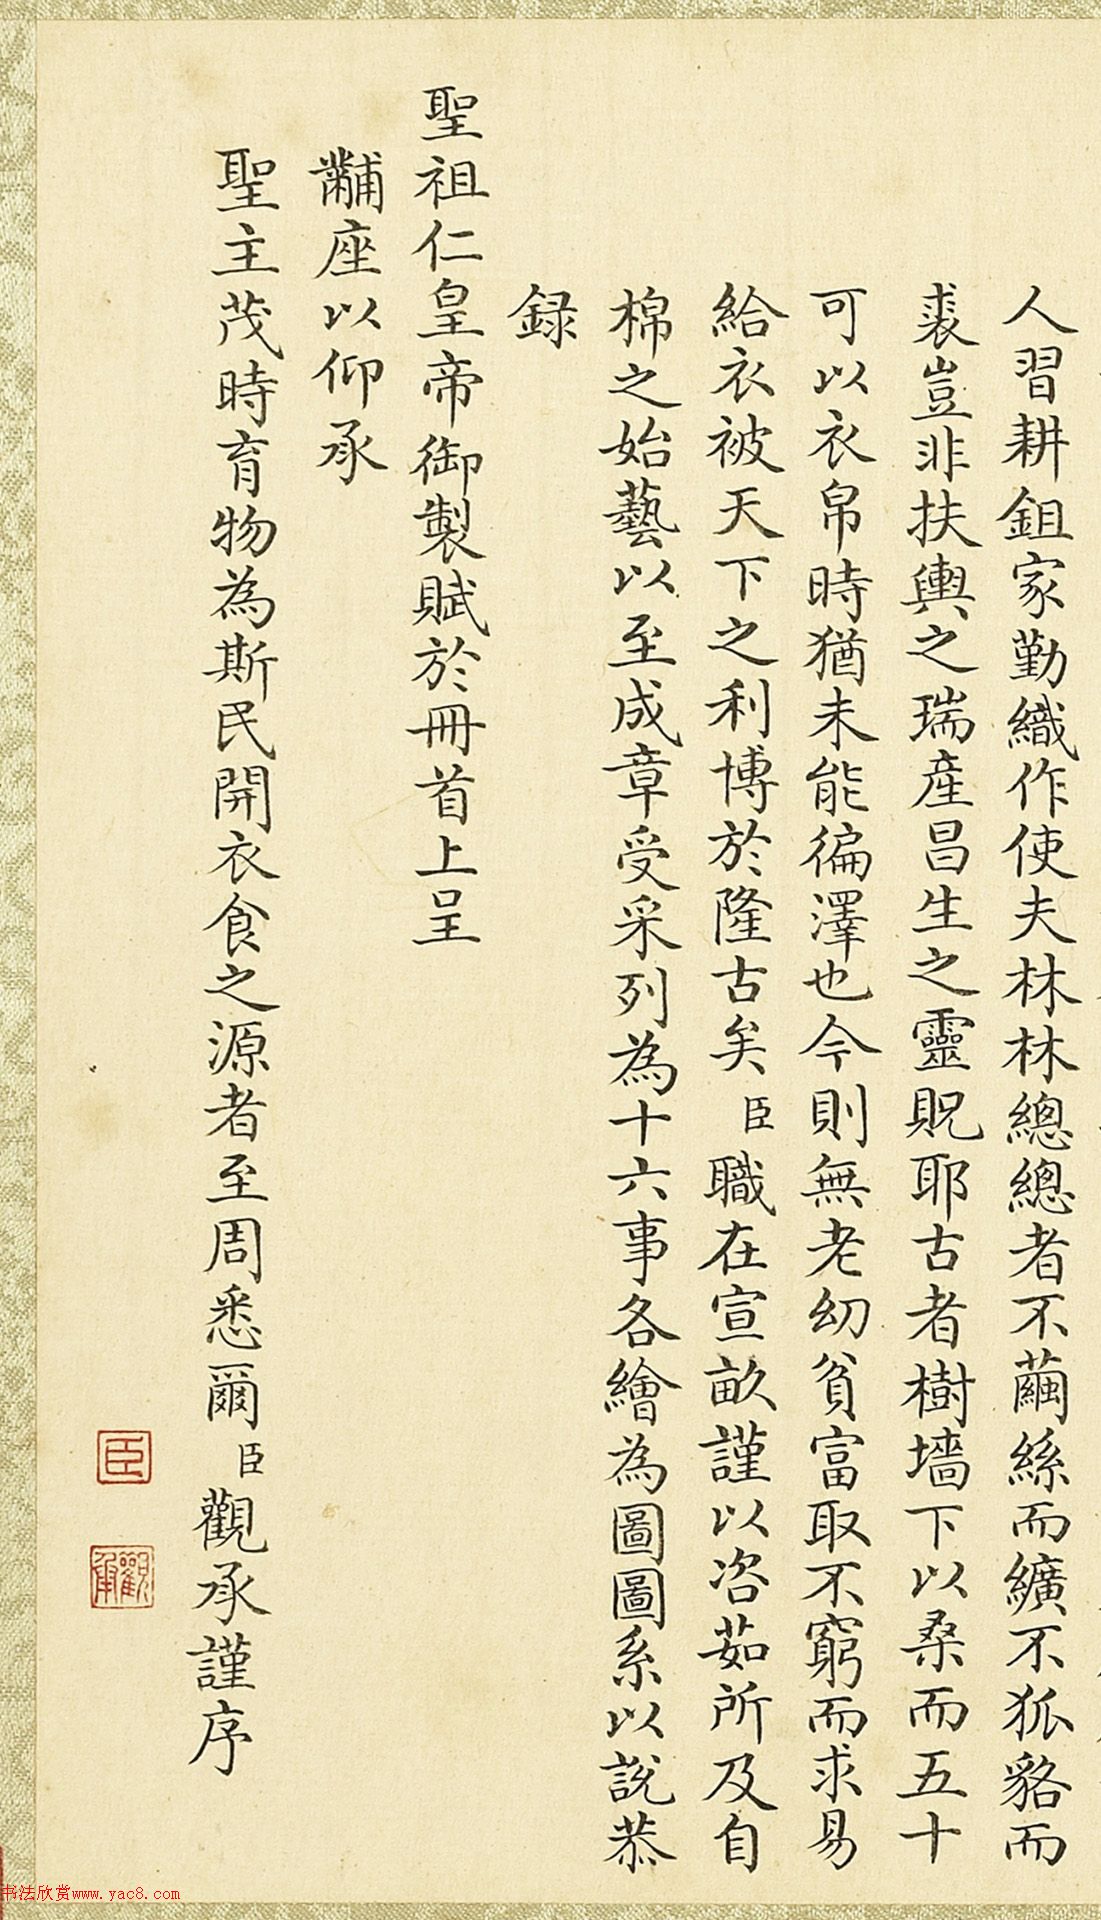 人習耕鉏家勤織作使夫林林總總者不繭絲而纊不狐貉而
裘豈非扶輿之瑞產昌生之靈貺耶古者樹墻下以桑而五十
可以衣帛時猶未能徧澤也今則無老幼貧富取不窮而求易
給衣被天下之利博於隆古矣臣職在宣畝謹以咨茹所及自
棉之始藝以至成章受采列為十六事各繪為圖圖系以說恭
録
聖祖仁皇帝御製賦於冊首上呈
黼座以仰承
聖主茂時育物為斯民開衣食之源者至周悉爾臣觀承謹序
臣
觀承
书法欣赏www.yac8.com